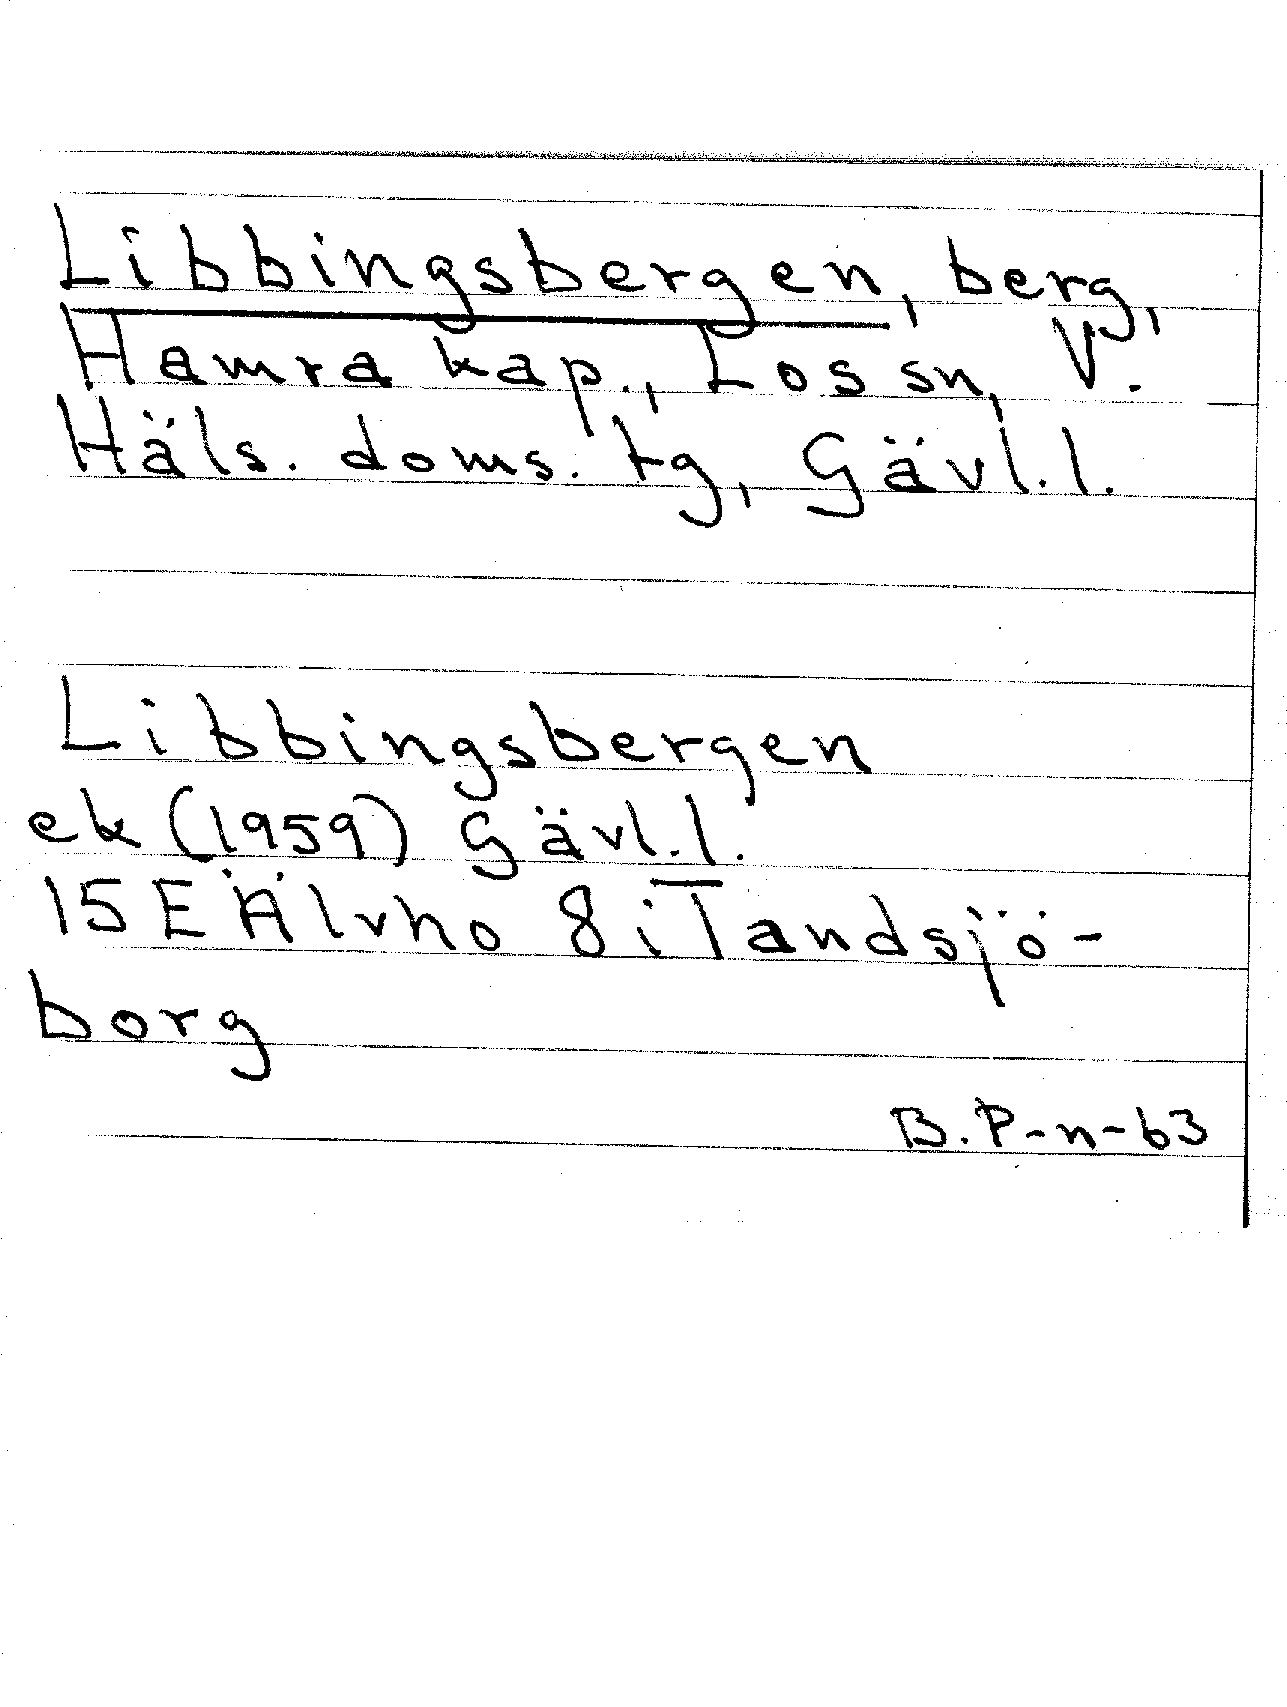 Libbingsbergen, berg,
Hamra kap., Los sn, V.
Häls. doms. tg, Gävl.l.
Libbingsbergen
ek (1959) Gävl.l.
15E Älvho 8i Tandsjö-
borg
B.P-n-63